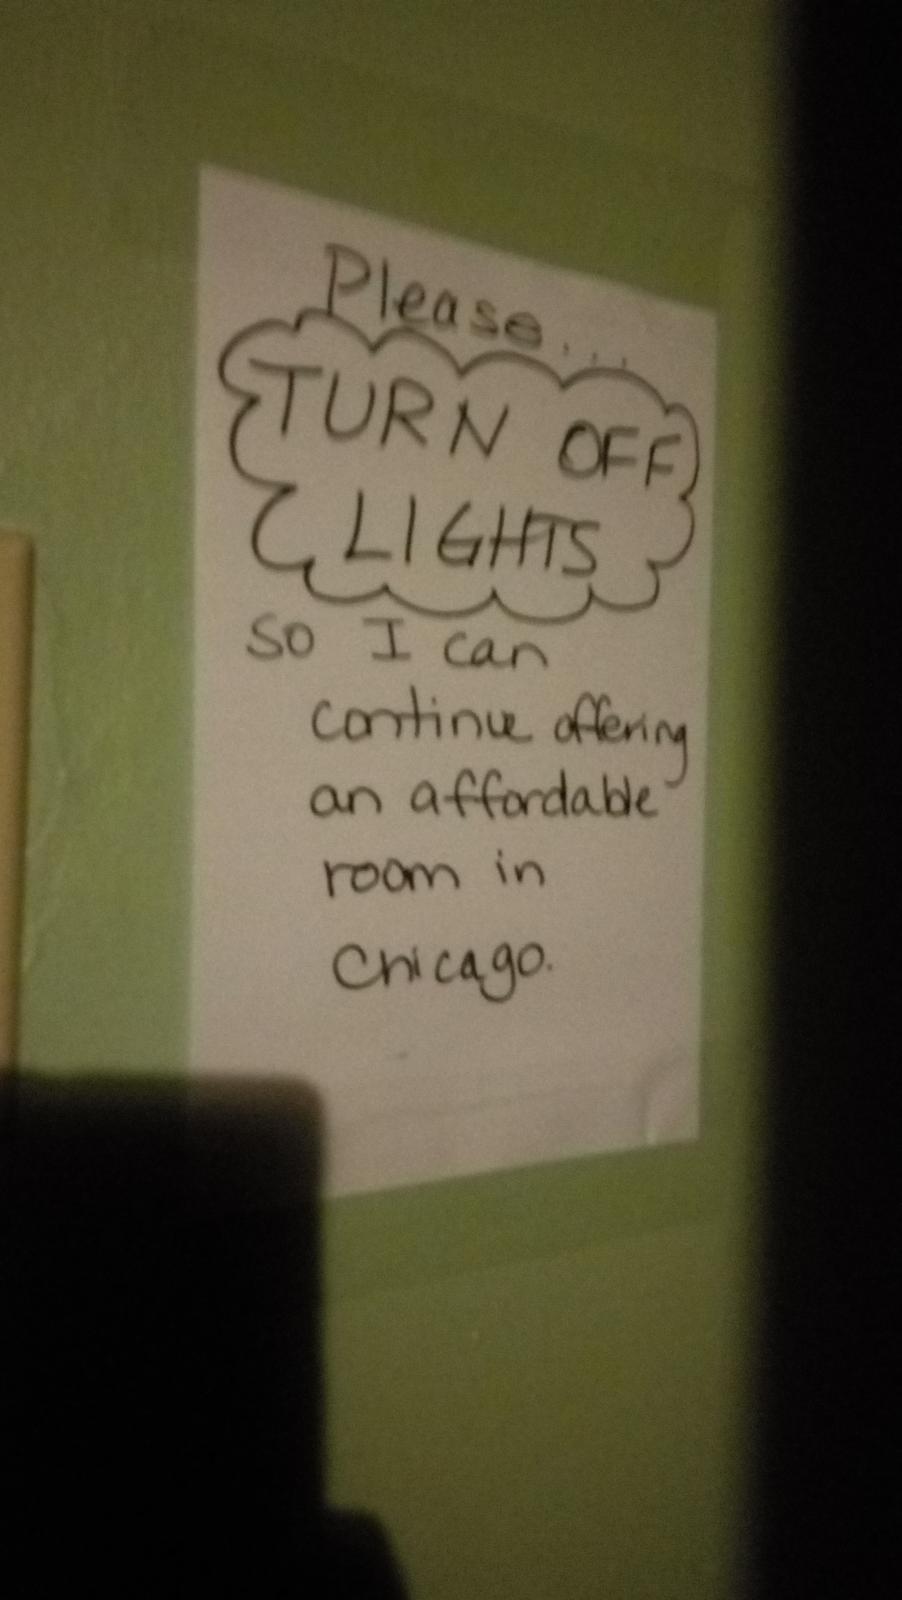 Please...
TURN OFF
LIGHTS
so I can
continue offering
an affordable
room in
Chicago.